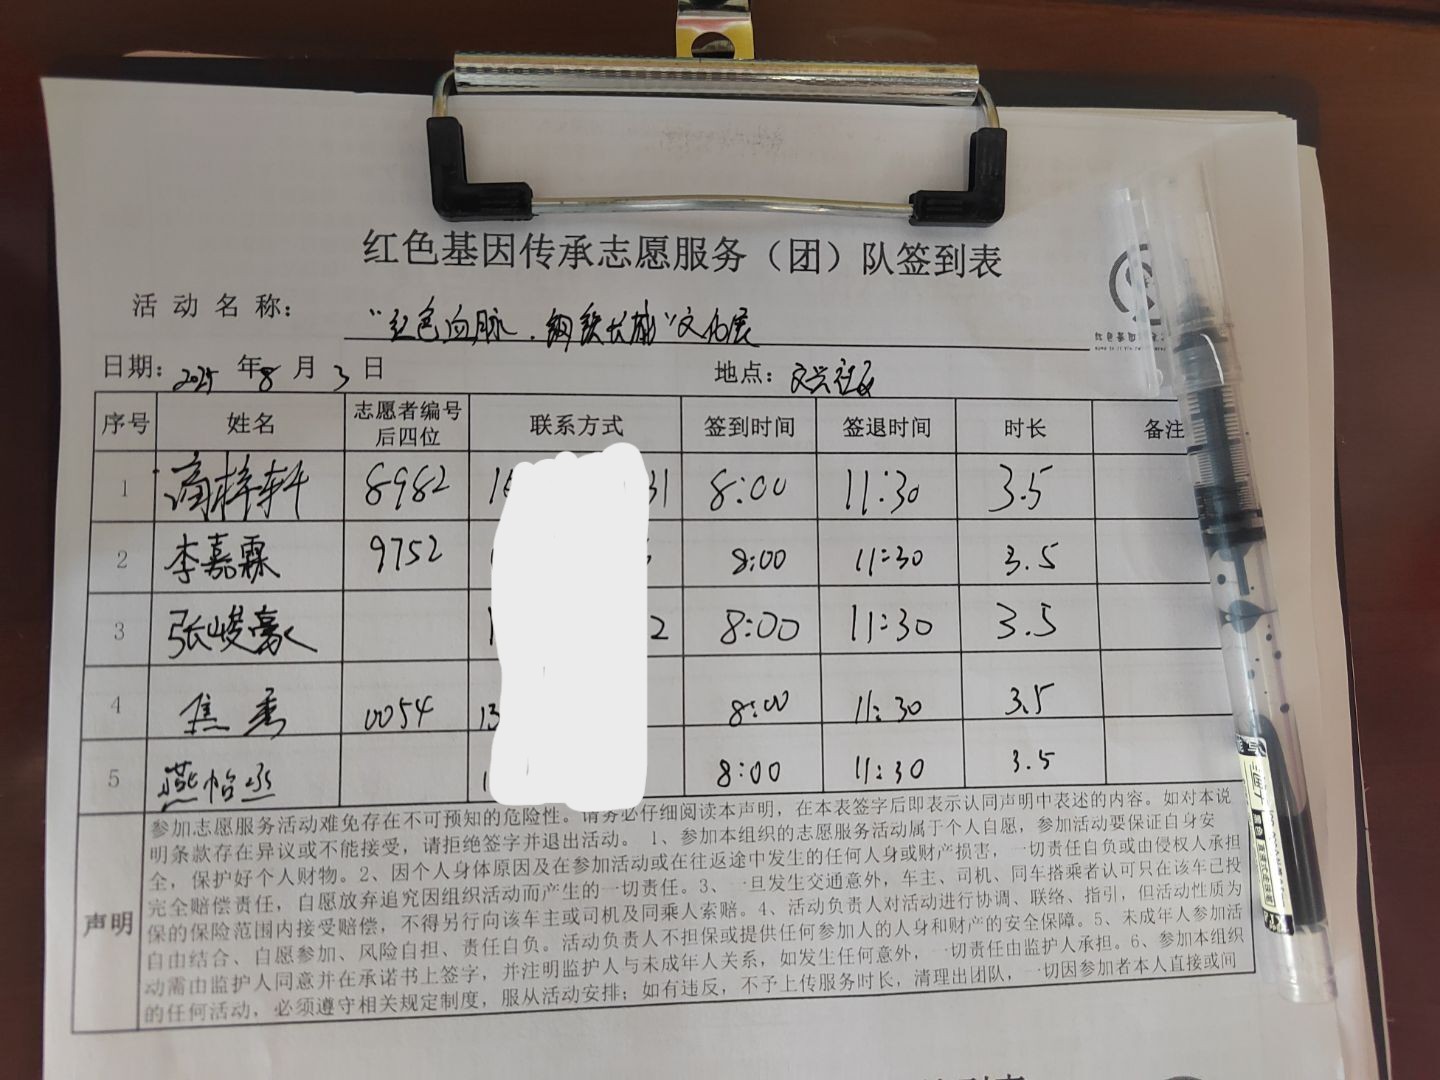 红色基因传承志愿服务（团）队签到表
活动名称： “红色血脉．钢铁长城”文化展
日期：2025年8月3日 地点：文兴社区
序号 姓名 志愿者编号后四位 联系方式 签到时间 签退时间 时长 备注
1 梓轩 8982 1 31 8:00 11:30 3.5
2 李嘉霖 9752 8:00 11:30 3.5
3 张峻豪 1 2 8:00 11:30 3.5
4 焦 0054 13 8:00 11:30 3.5
5 燕怡丞 1 8:00 11:30 3.5
声明
参加志愿服务活动难免存在不可预知的危险性。请务必仔细阅读本声明，在本表签字后即表示认同声明中表述的内容。如对本说
明条款存在异议或不能接受，请拒绝签字并退出活动。 1、参加本组织的志愿服务活动属于个人自愿，参加活动要保证自身安
全，保护好个人财物。2、因个人身体原因及在参加活动或在往返途中发生的任何人身或财产损害，一切责任自负或由侵权人承担
完全赔偿责任，自愿放弃追究因组织活动而产生的一切责任。3、一旦发生交通意外，车主、司机、同车搭乘者认可只在该车已投
保的保险范围内接受赔偿，不得另行向该车主或司机及同乘人索赔。4、活动负责人对活动进行协调、联络、指引，但活动性质为
自由结合、自愿参加、风险自担、责任自负。活动负责人不担保或提供任何参加人的人身和财产的安全保障。5、未成年人参加活
动需由监护人同意并在承诺书上签字，并注明监护人与未成年人关系，如发生任何意外，一切责任由监护人承担。6、参加本组织
的任何活动，必须遵守相关规定制度，服从活动安排；如有违反，不予上传服务时长，清理出团队，一切因参加者本人直接或间